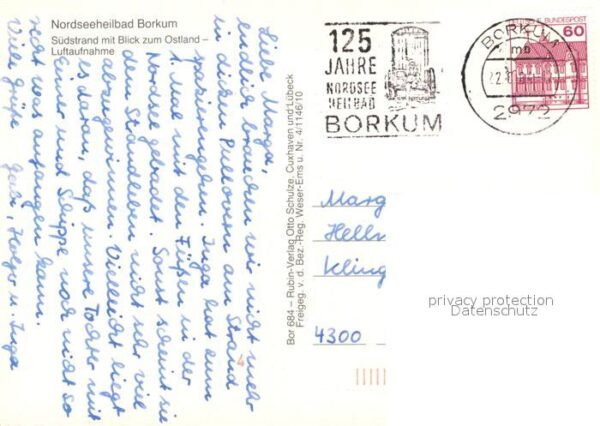 Nordseeheilbad Borkum
Südstrand mit Blick zum Ostland –
Luftaufnahme
Liebe Marga,
endlich brauchen wir nicht mehr
in dicken Pullovern am Strand
spazierengehen. Inga hat zum
1. Mal mit den Füßen in der
Nordsee gebadet. Sonst scheint sie
dem Strandleben nicht sehr viel
abzugewinnen. Vielleicht liegt
es daran, daß unsere Tochter mit
Eimer und Schippe noch nicht so
recht was anfangen kann.
Viele Grüße Gabi, Holger u. Inga
4
Bor 684 – Rubin-Verlag Otto Schulze, Cuxhaven und Lübeck
Freigeg. v. d. Bez.-Reg. Weser-Ems u. Nr. 4/1146/10
125
JAHRE
NORDSEE
HEILBAD
BORKUM
BORKUM 1
mb
2972
BUNDESPOST
60
Marg
Hells
Kling
4300
privacy protection
Datenschutz